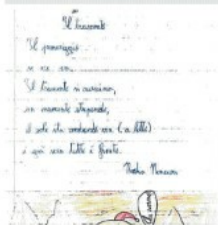 Il tramonto
Il pomeriggio
Il tramonto si avvicina,
un momento stupendo,
il sole sta andando via (a letto)
è già sera tutto è finito.